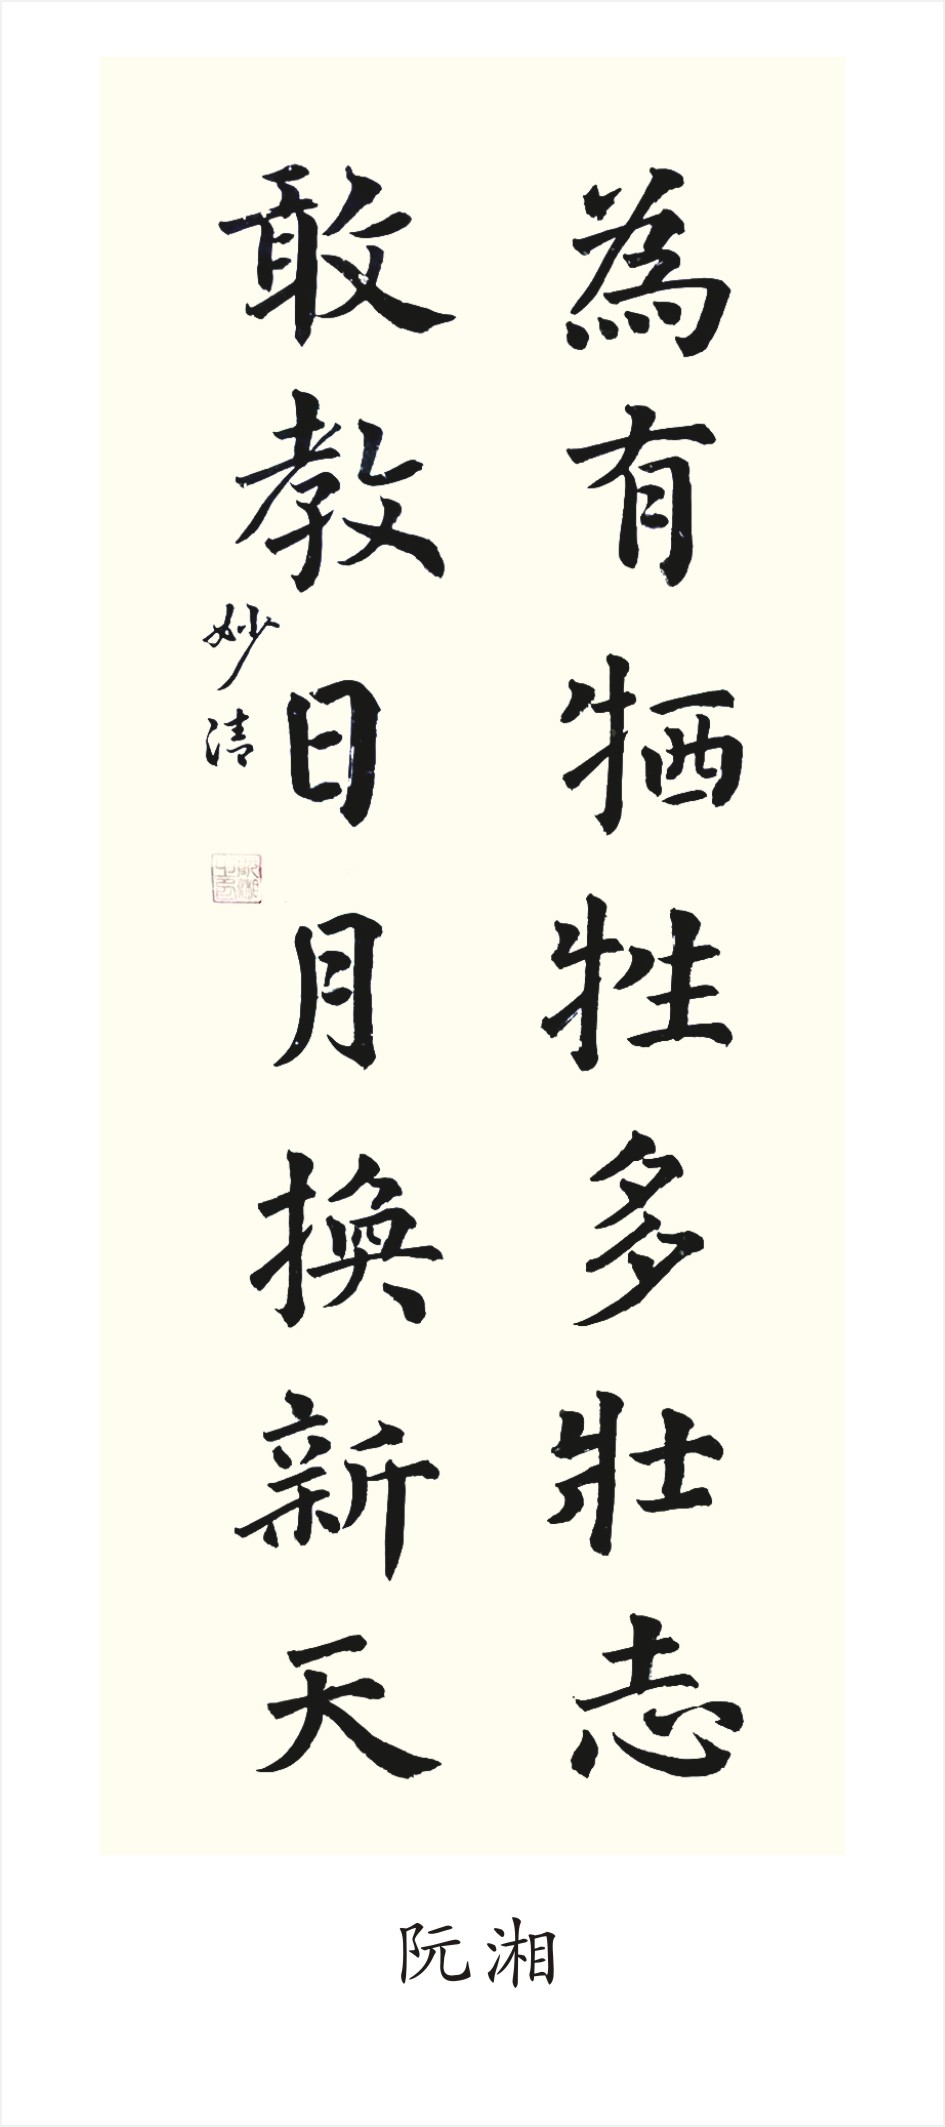 為有牺牲多壯志
敢教日月换新天
妙清
阮湘